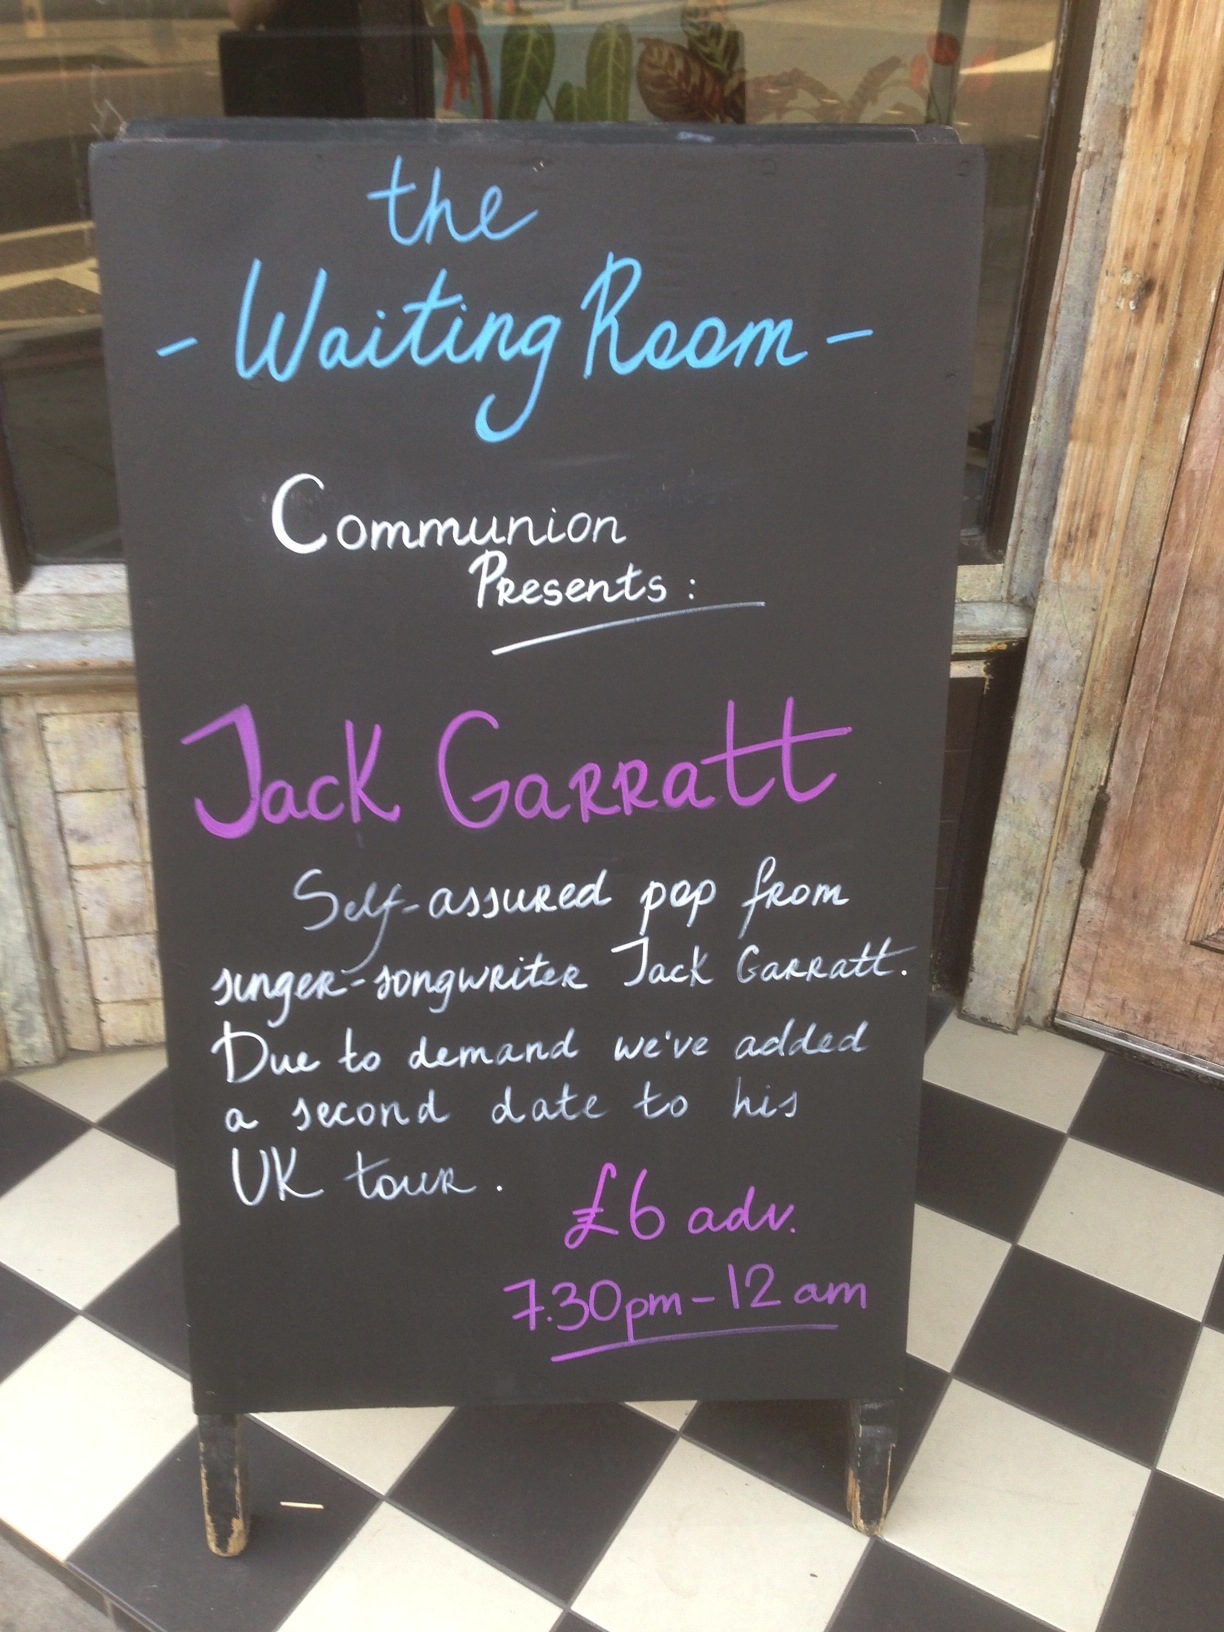 the
- Waiting Room -
Communion
Presents:
Jack Garratt
Self-assured pop from
singer-songwriter Jack Garratt.
Due to demand we've added
a second date to his
UK tour.
£6 adv.
7.30pm - 12am